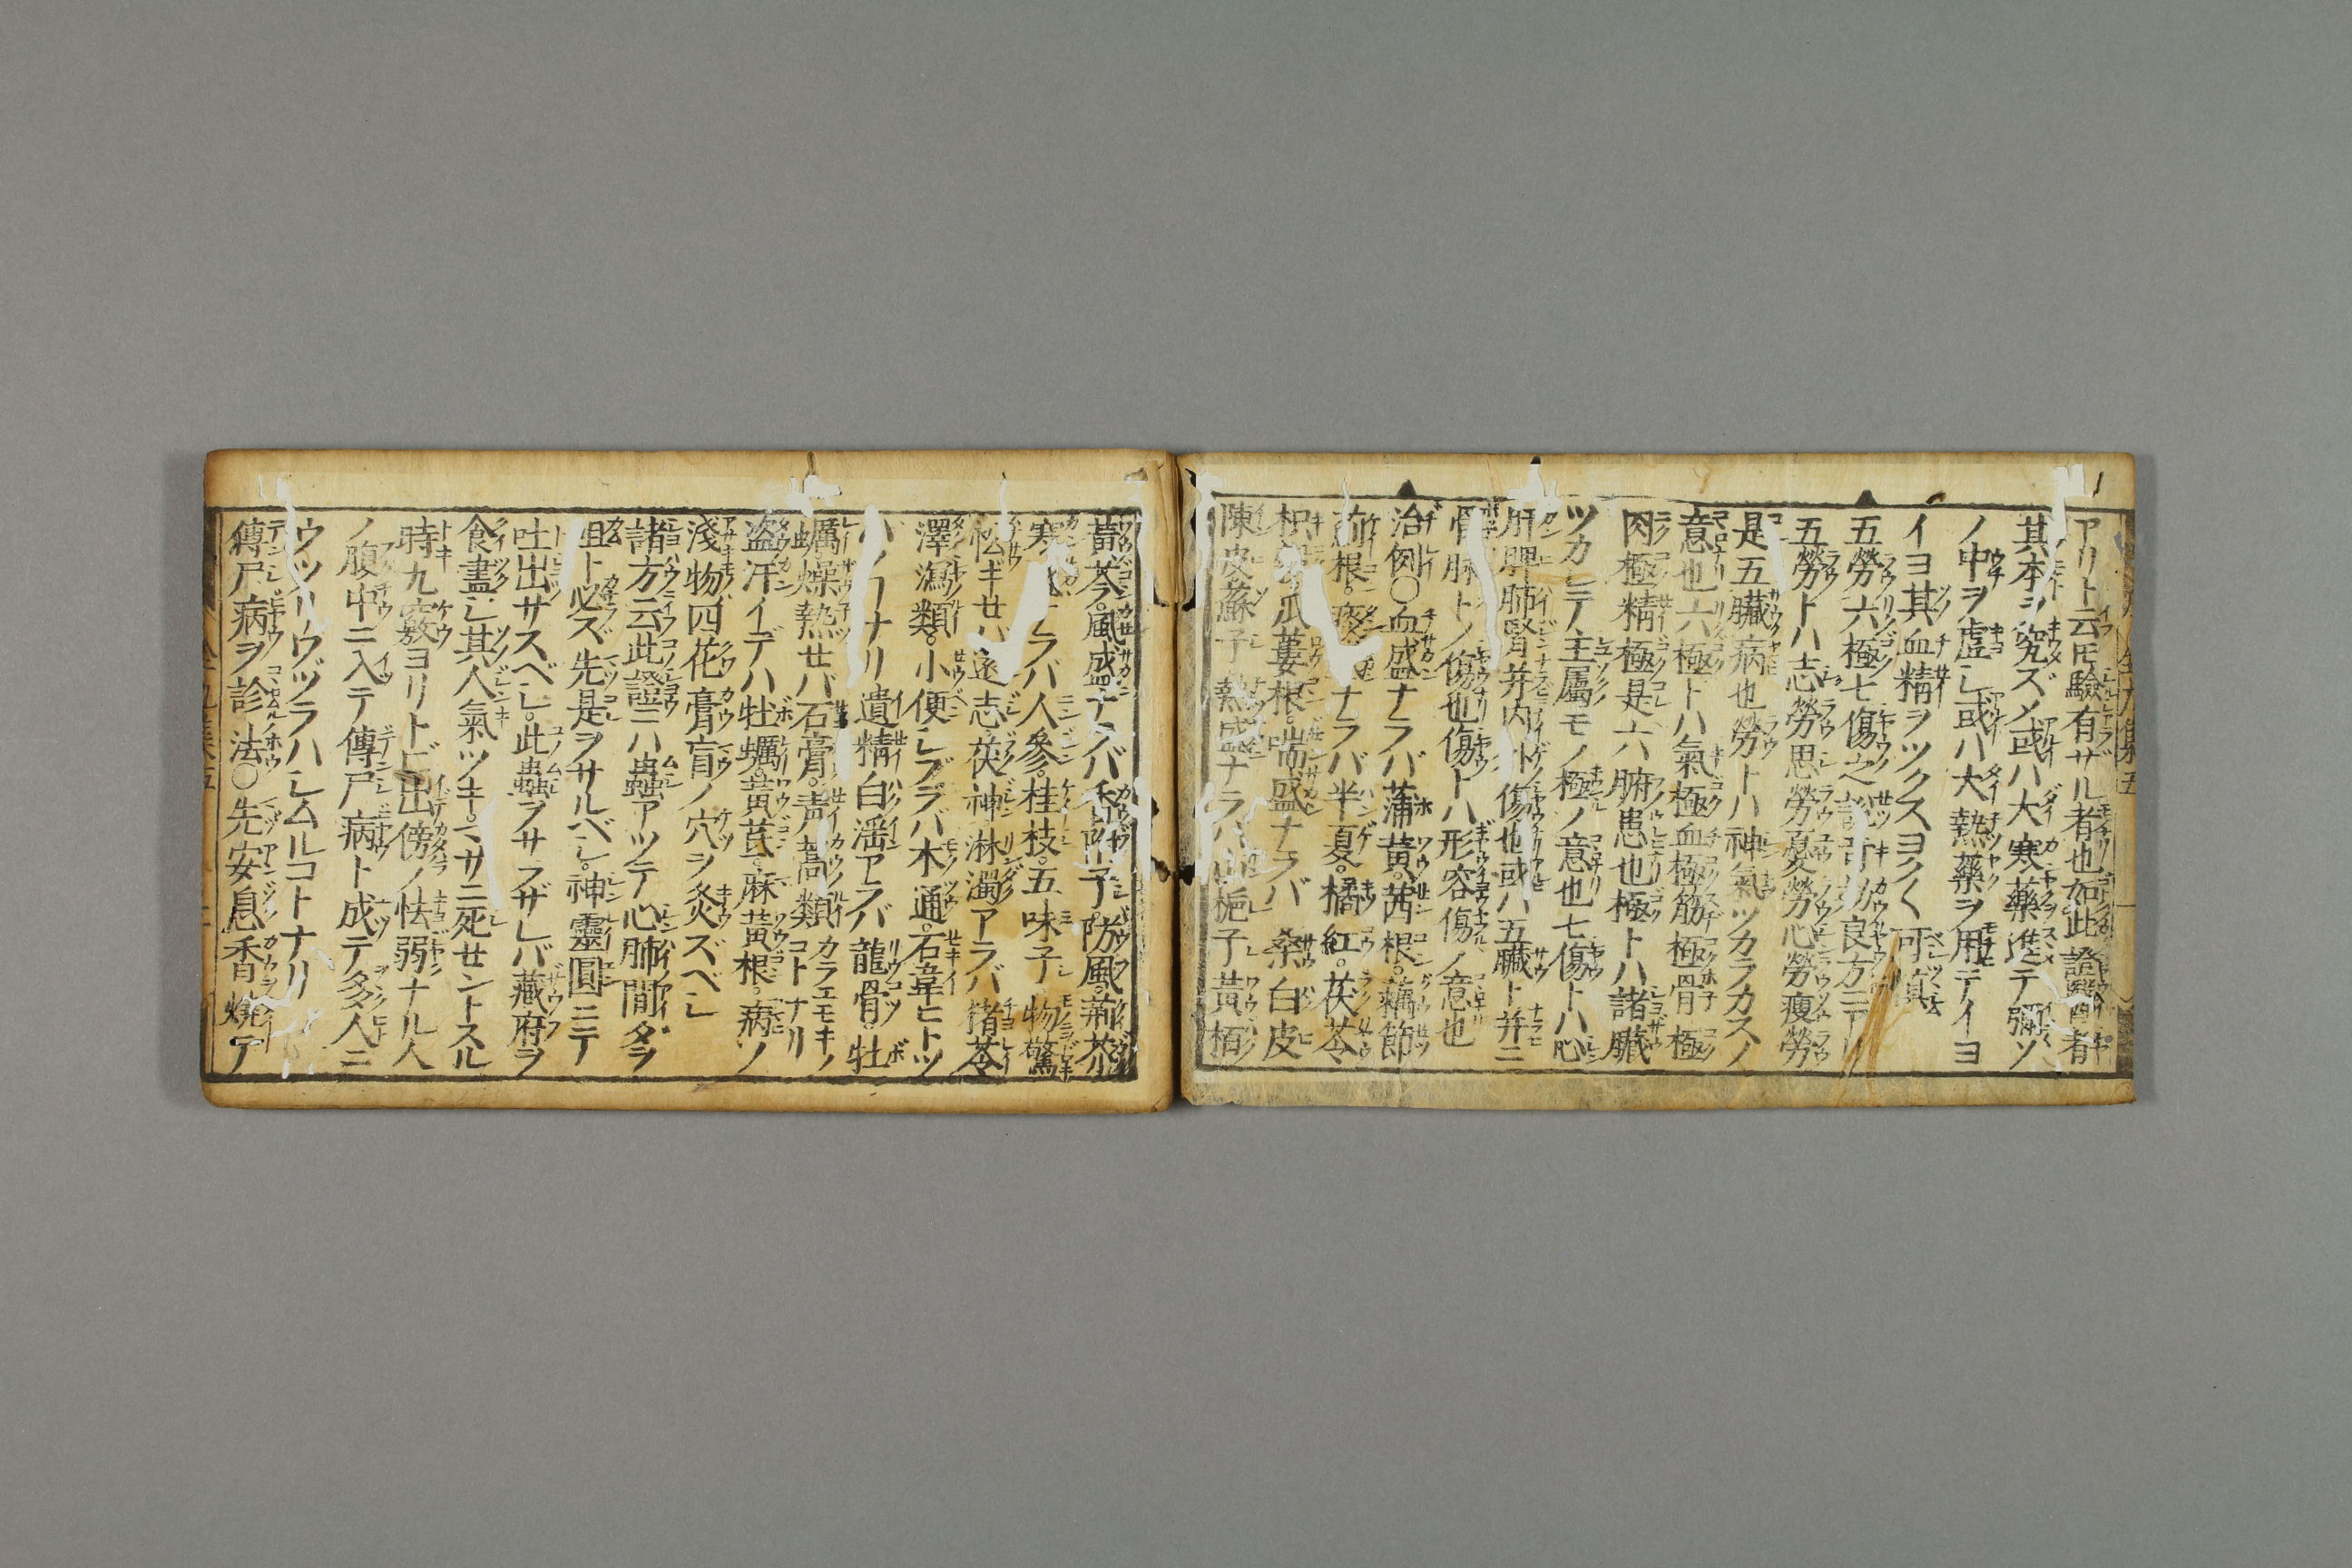 アリト云𪜈驗有サル者也如此證醫者
其本ヲ究ズメ或ハ大寒藥進テ彌ソ
ノ中ヲ虚乄或ハ大熱藥ヲ用テイヨ
イヨ其血精ヲツクスヨク〱可愼
五勞六極七傷之 良方ニ
五勞トハ志勞思勞憂勞心勞瘦勞
是五臟病也勞トハ神氣ツカラカスノ
意也六極トハ氣極血極筋極骨極
肉極精極是六腑患也極トハ諸臟
ツカレテ主属モノ極ノ意也七傷トハ心
肝脾肺腎并内外傷也或ハ五臟ト并ニ
骨脉トノ傷也傷トハ形容傷ノ意也
治例○血盛ナラバ蒲黄。茜根。藕節
前根。痰 ナラバ半夏。橘紅。茯苓
枳 瓜蔞根。喘盛ナラバ 桑白皮
陳皮蘇子熱盛ナラバ山梔子黄栢
黄芩。風盛ナラバ香附子。防風。荊芥
寒 ナラバ人參。桂枝。五味子 物驚
忪ギせバ遠志。茯神淋濁アラバ 猪苓
澤瀉類。小便シブラバ木通。石韋ヒトツ
ハノ ナリ遺精白淫アラバ龍骨。牡
蠣。燥熱せバ石膏。靑蒿類 カラエモキノコトナリ
盗汗イデハ牡蠣。黄芪。麻黄根。病ノ
淺物四花膏肓ノ穴ヲ灸ズベシ
諸方云此證ニハ蟲アツテ心肺間タヲ
咀ト必ズ先是ヲサルベシ。神靈圓ニテ
吐出サスベシ。此蟲ヲサラザレバ藏府ヲ
食盡乄其人氣ツキ。マサニ死せントスル
時九竅ヨリトビ出傍ノ怯弱ナル人
ノ腹中ニ入テ傳尸病ト成テ多人ニ
ウツリウヅラハシムルコトナリ
傳尸病ヲ診 法○先安息香燒テ